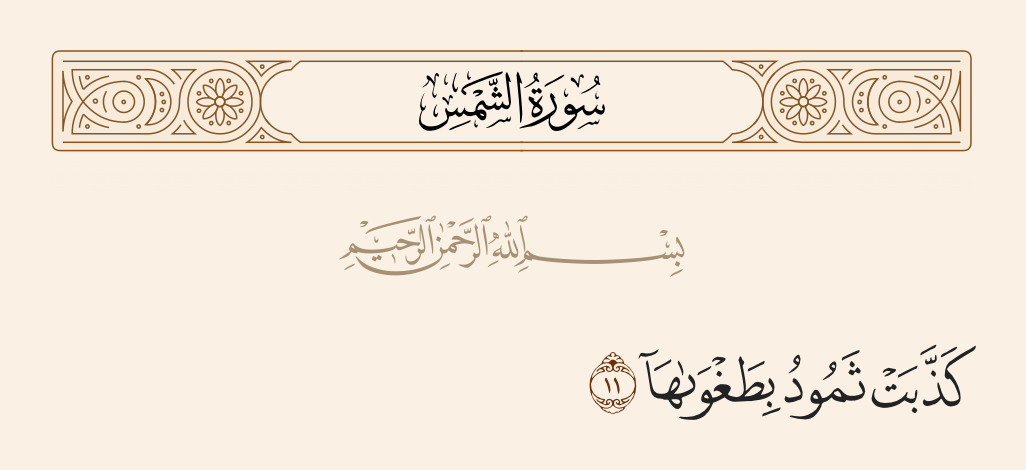 سُورَةُ الشَّمْسِ
بِسْمِ ٱللَّهِ ٱلرَّحْمَٰنِ ٱلرَّحِيمِ
كَذَّبَتْ ثَمُودُ بِطَغْوَىٰهَآ ١١